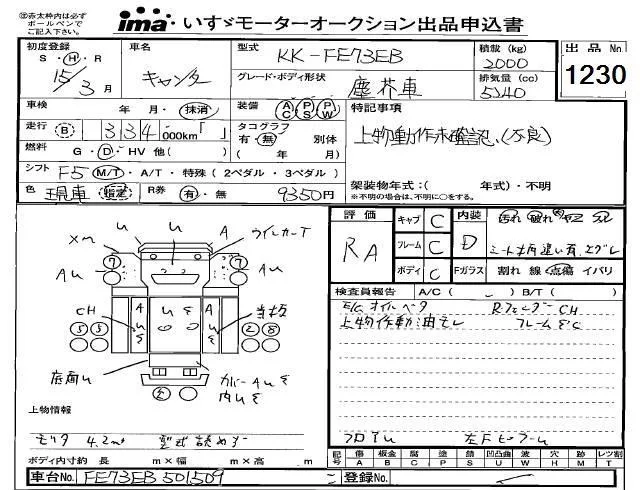 ㊟赤太枠内は必ず
ボールペンで
ご記入下さい。
ima いすゞモーターオークション出品申込書
初度登録 車名 型式 KK-FE73EB 積載(kg) 2000 出品No. 1230
S・H・R 15/3月 キャンター グレード・ボディ形状 塵芥車 排気量(cc) 5240
車検 年・月・抹消 装備 AC PS PW 特記事項
走行 B 334,000km「 」 タコグラフ 有・無 別体 ( 年 月) 上物動作未確認、(不良)
燃料 G・D・HV 他( )
シフト F5 M/T・A/T・特殊(2ペダル・3ペダル) 架装物年式:( 年式)・不明
色 現車 指定 R券 有・無 9350円 ※不明の場合は、不明に○をする。
評価 RA キャブ C 内装 D 汚れ 破れ コゲ
フレーム C
ボディ C Fガラス 割れ 線 点傷 イバリ
検査員報告 A/C( ) B/T( )
上物作動油モレ
フレームΣC
フロアU
Xm U U A
AU AU
CH A U Σ U Σ A U Σ
底面U カバーAUΣ
内UΣ
上物情報
モリタ 4.2m³ 型式読めず
ボディ内寸約 長 m×幅 m×高 m
記号 傷A 板金B 腐C 凹P 錆S 凹凸曲U 波W 穴H 跡M レツ割T
車台No. FE73EB 501509 登録No.